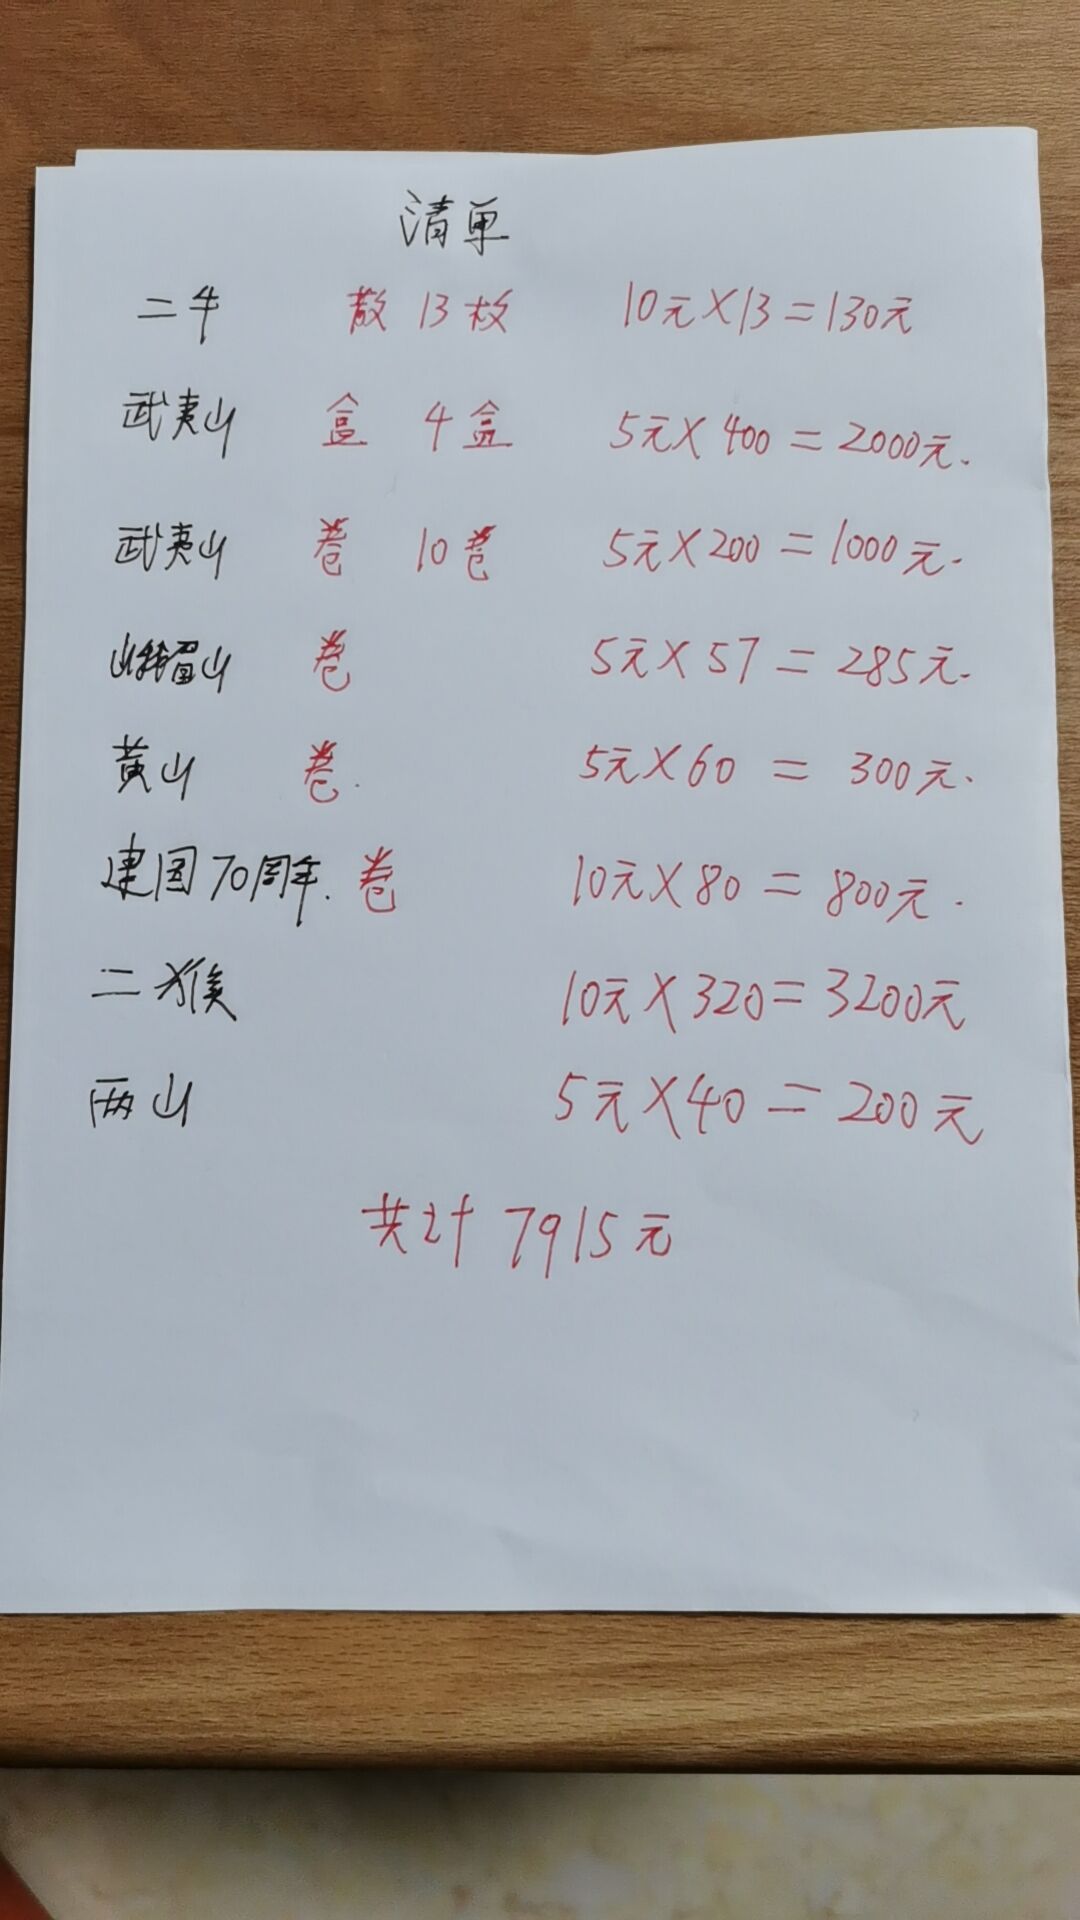 清单
二牛 散 13枚 10元×13=130元
武夷山 盒 4盒 5元×400=2000元.
武夷山 卷 10卷 5元×200=1000元.
峨眉山 卷 5元×57=285元.
黄山 卷. 5元×60=300元.
建国70周年. 卷 10元×80=800元.
二猴 10元×320=3200元
两山 5元×40=200元
共计 7915元